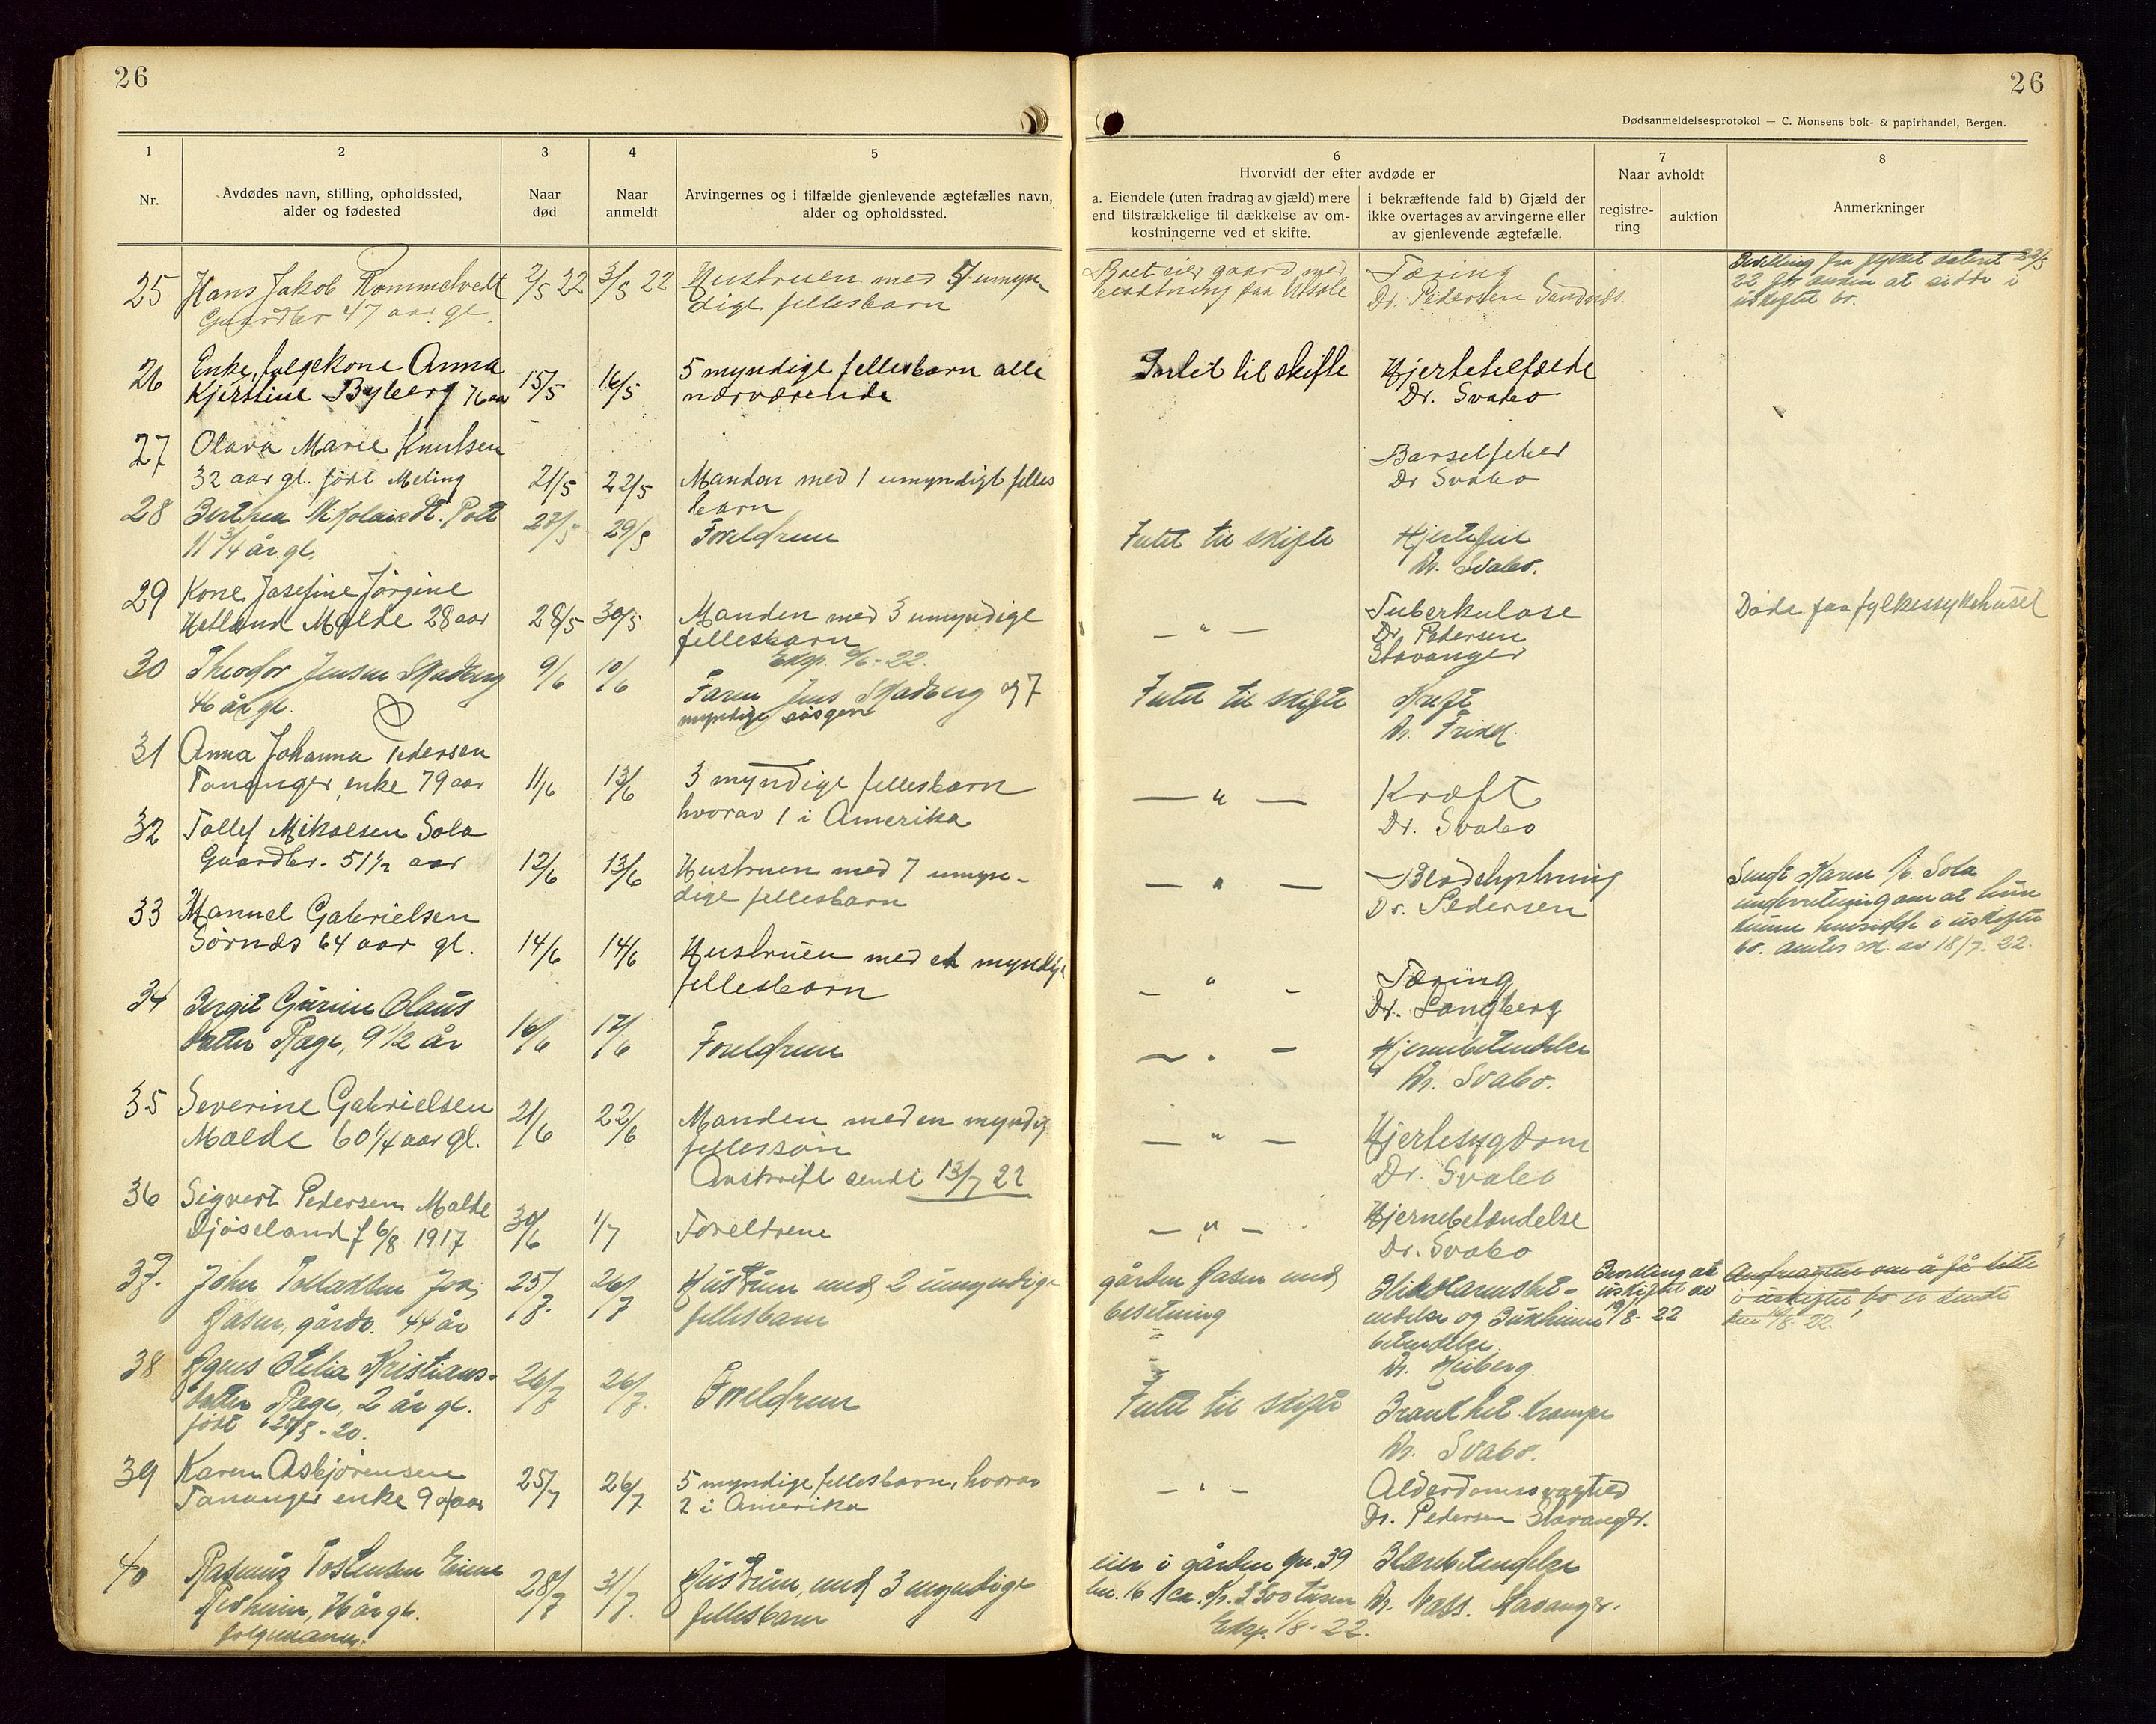 26
26
Dødsanmeldelsesprotokol — C. Monsens bok- & papirhandel, Bergen.
1 2 3 4 5 6 7 8
Nr.
Avdødes navn, stilling, opholdssted,
alder og fødested
Naar
død
Naar
anmeldt
Arvingernes og i tilfælde gjenlevende ægtefælles navn,
alder og opholdssted.
Hvorvidt der efter avdøde er
a. Eiendele (uten fradrag av gjæld) mere
end tilstrækkelige til dækkelse av om-
kostningerne ved et skifte.
i bekræftende fald b) Gjæld der
ikke overtages av arvingerne eller
av gjenlevende ægtefælle.
Naar avholdt
registre-
ring
auktion
Anmerkninger
25 Hans Jakob Rommetvedt 2/5 22 3/5 22 Hustruen med 7 umyn
Gaardbr 47 aar gl. dige fellesbarn
Boet eier gaard med
besetning paa
Tæring
Dr. Pedersen Sandnes.
Bevilling fra fylket datert 23/5
22 for enken at sidde i
uskiftet bo.
26 Enke, folgekone Anna
Kjerstine Byberg 76 aar 15/5 16/5 5 myndige fellesbarn alle
nærværende
Intet til skifte
Hjertelidelse
Dr. Svabo
27 Olava Marie Knutsen
32 aar gl. født Meling 21/5 22/5 Manden med 1 umyndigt felles
barn
Barselfeber
Dr Svabo
28 Berthea Nikolaisdt.
11 3/4 år gl. 27/5 29/5 Foreldrene
Intet til skifte
Hjertefeil
Dr. Svabo.
29 Kone Josefine Jørgine
Hetland Malde 28 aar 28/5 30/5 Manden med 3 umyndige
fellesbarn
Eksp. 9/6-22.
— " —
Tuberkulose
Dr. Pedersen
Stavanger
Døde paa fylkessykehuset
30 Theodor Jensen Skadberg 9/6 10/6 Faren Jens Skadberg og 7
46 år gl. myndige søsgen
Intet til skifte
Kreft
Dr.
31 Anna Johanna Pedersen
Tananger, enke 79 aar 11/6 13/6 3 myndige fellesbarn
hvorav 1 i Amerika
— " —
Kræft
Dr. Svabo
32 Tollef Mikalsen Sola
Gaardbr. 51 1/2 aar 12/6 13/6 Hustruen med 7 umyn-
dige fellesbarn
— " —
Blodstyrtning
Dr. Pedersen
Sendt Karen Sola
underretning om at hun
kunne hensidde i uskiftet
bo. amtets av 18/7. 22.
33 Manuel Gabrielsen
Sørnæs 64 aar gl. 14/6 14/6 Hustruen med et myndig
fellesbarn
— " —
Tæring
Dr. Langberg
34 Birgit Gurine Olaus
datter Ræge, 9 1/2 år 16/6 17/6 Foreldrene
— " —
Hjernebetendelse
Dr. Svabo.
35 Severine Gabrielsen
Malde 60 1/4 aar gl. 21/6 22/6 Manden med en myndig
fellessøn
Avskrift sendt 13/7 22
— " —
Hjertesygdom
Dr. Svabo
36 Sigvert Pedersen Malde
Djøseland f 6/8 1917 30/6 1/7 Foreldrene
— " —
Hjernebetændelse
Dr. Svabo
37. John Tolladsen Joa
Gåsen, gårdbr. 44 år 25/7. 26/7 Hustruen med 2 umyndige
fellesbarn
gården Gåsen med
besetning
og Bukhinne
betendelse.
Dr. Heiberg.
Bevilling at
uskiftet av
19/8-22
Andragende om å få sitte
i uskiftet bo er sendt
den 1/8-22.
38 Agnes Otilia Kristians-
datter Ræge, 2 år gl.
født 20/5-20. 26/7 26/7. Foreldrene
Intet til skifte
Krampe
Dr. Svabo.
39 Karen Asbjørensen
Tananger enke 90 aar 25/7 26/7 5 myndige fellesbarn, hvorav
2 i Amerika
— " —
Alderdomssvaghed
Dr. Pedersen Stavanger.
40 Rasmus Tostensen
76 år gl.
folgemann. 28/7 31/7. Hustruen, med 3 myndige
fellesbarn
eier i gården gn. 39
bn. 16 ca. Kr. 3500
Eksp. 1/8-22.
Dr. Næss. Stavanger.